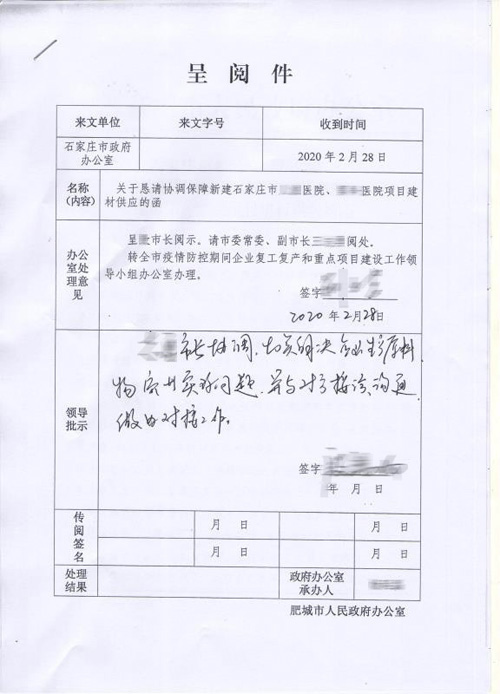 呈 阅 件
来文单位 来文字号 收到时间
石家庄市政府
办公室
2020 年 2 月 28 日
名称
(内容)
关于恳请协调保障新建石家庄市 医院、 医院项目建
材供应的函
办公
室处
理意
见
呈 市长阅示。请市委常委、副市长 阅处。
转全市疫情防控期间企业复工复产和重点项目建设工作领
导小组办公室办理。
签字
2020 年 2 月 28 日
领导
批示
市长协调,切实解决企业生产原料、
物 实际问题,并与对方接洽沟通,
做好对接工作。
签字
年 月 日
传
阅
签
名
月 日 月 日
月 日 月 日
处理
结果
政府办公室
承办人
肥城市人民政府办公室